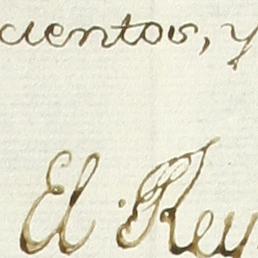 cientos, y
El Rey